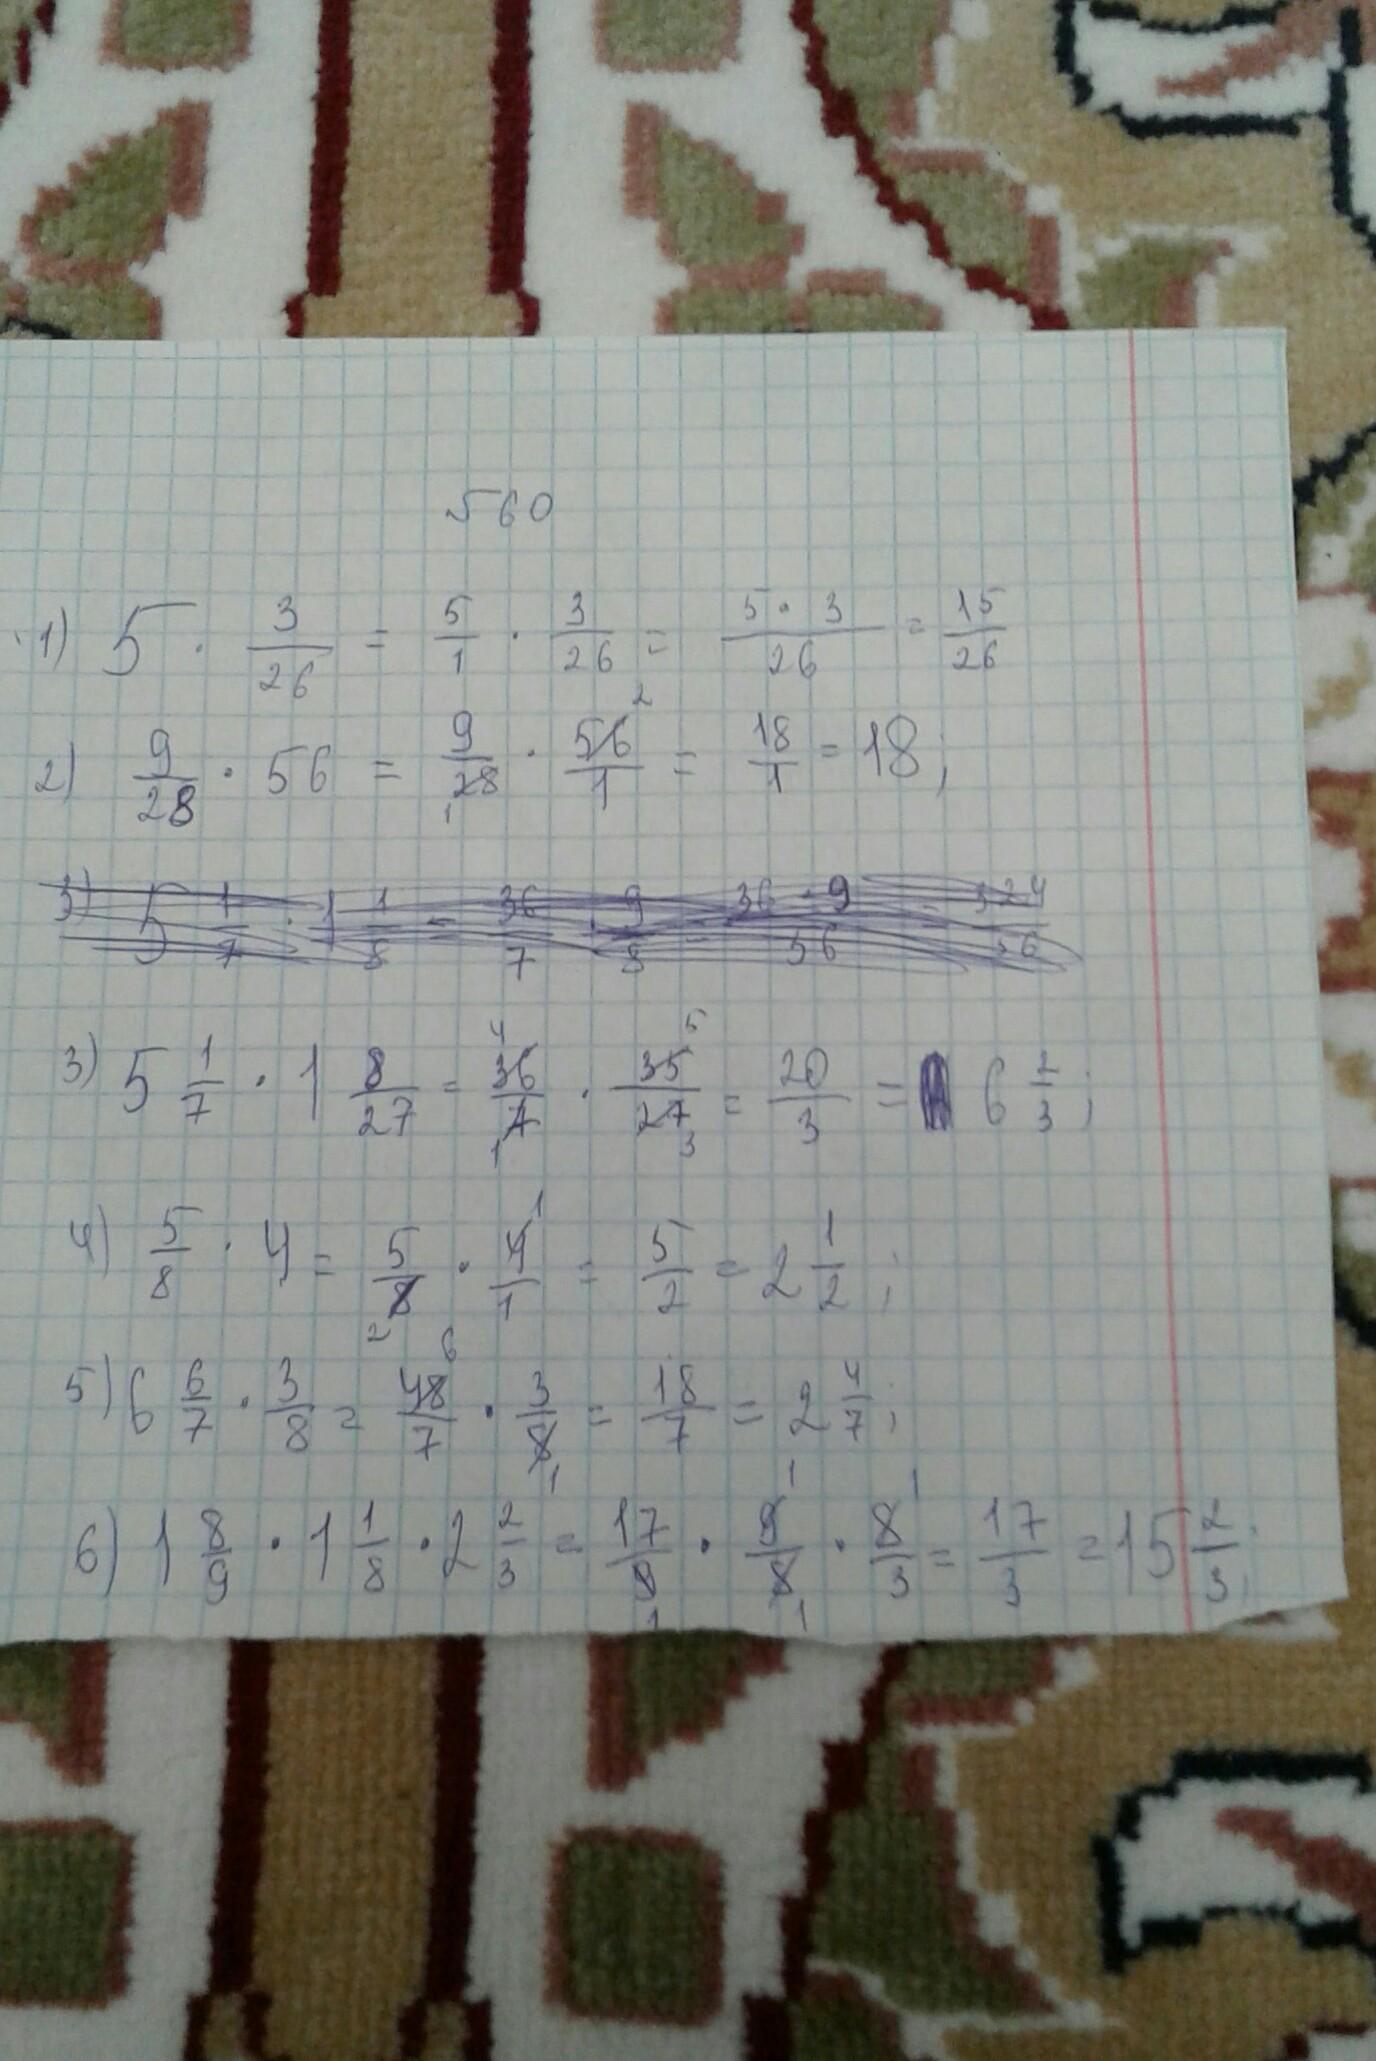 560
1) 5 · 3/26 = 5/1 · 3/26 = 5·3/26 = 15/26
2) 9/28 · 56 = 9/28 1 · 56 2/1 = 18/1 = 18;
3) 5 1/7 · 1 1/8 = 36/7 · 9/8 = 36·9/56 = 324/56
3) 5 1/7 · 1 8/27 = 36 4/7 1 · 35 5/27 3 = 20/3 = 6 2/3;
4) 5/8 · 4 = 5/8 2 · 4 1/1 = 5/2 = 2 1/2;
5) 6 6/7 · 3/8 = 48 6/7 · 3/8 1 = 18/7 = 2 4/7;
6) 1 8/9 · 1 1/8 · 2 2/3 = 17/9 1 · 9 1/8 1 · 8 1/3 = 17/3 = 15 2/3;